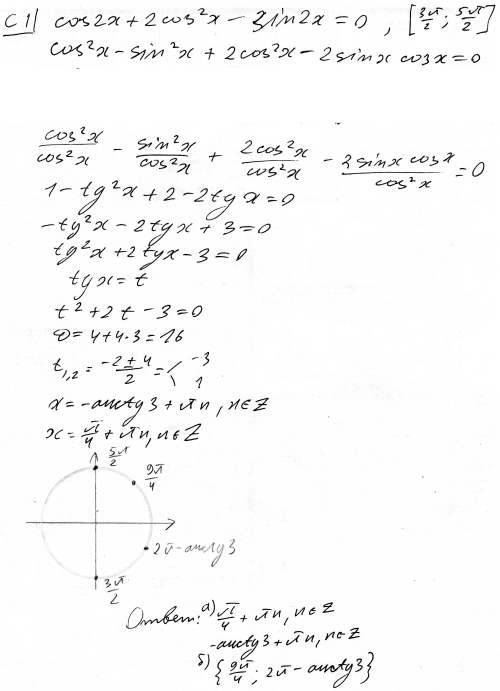 С1) cos2x + 2cos²x − sin2x = 0 , [3π/2 ; 5π/2]
cos²x − sin²x + 2cos²x − 2sinx cosx = 0
cos²x/cos²x − sin²x/cos²x + 2cos²x/cos²x − 2sinx cosx/cos²x = 0
1 − tg²x + 2 − 2tgx = 0
−tg²x − 2tgx + 3 = 0
tg²x + 2tgx − 3 = 0
tgx = t
t² + 2t − 3 = 0
D = 4 + 4·3 = 16
t₁,₂ = (−2 ± 4)/2 = ⟨ −3
1
x = −arctg3 + πn, n∈Z
x = π/4 + πn, n∈Z
5π/2
9π/4
2π − arctg3
3π/2
Ответ: а) π/4 + πn, n∈Z
−arctg3 + πn, n∈Z
б) {9π/4 ; 2π − arctg3}